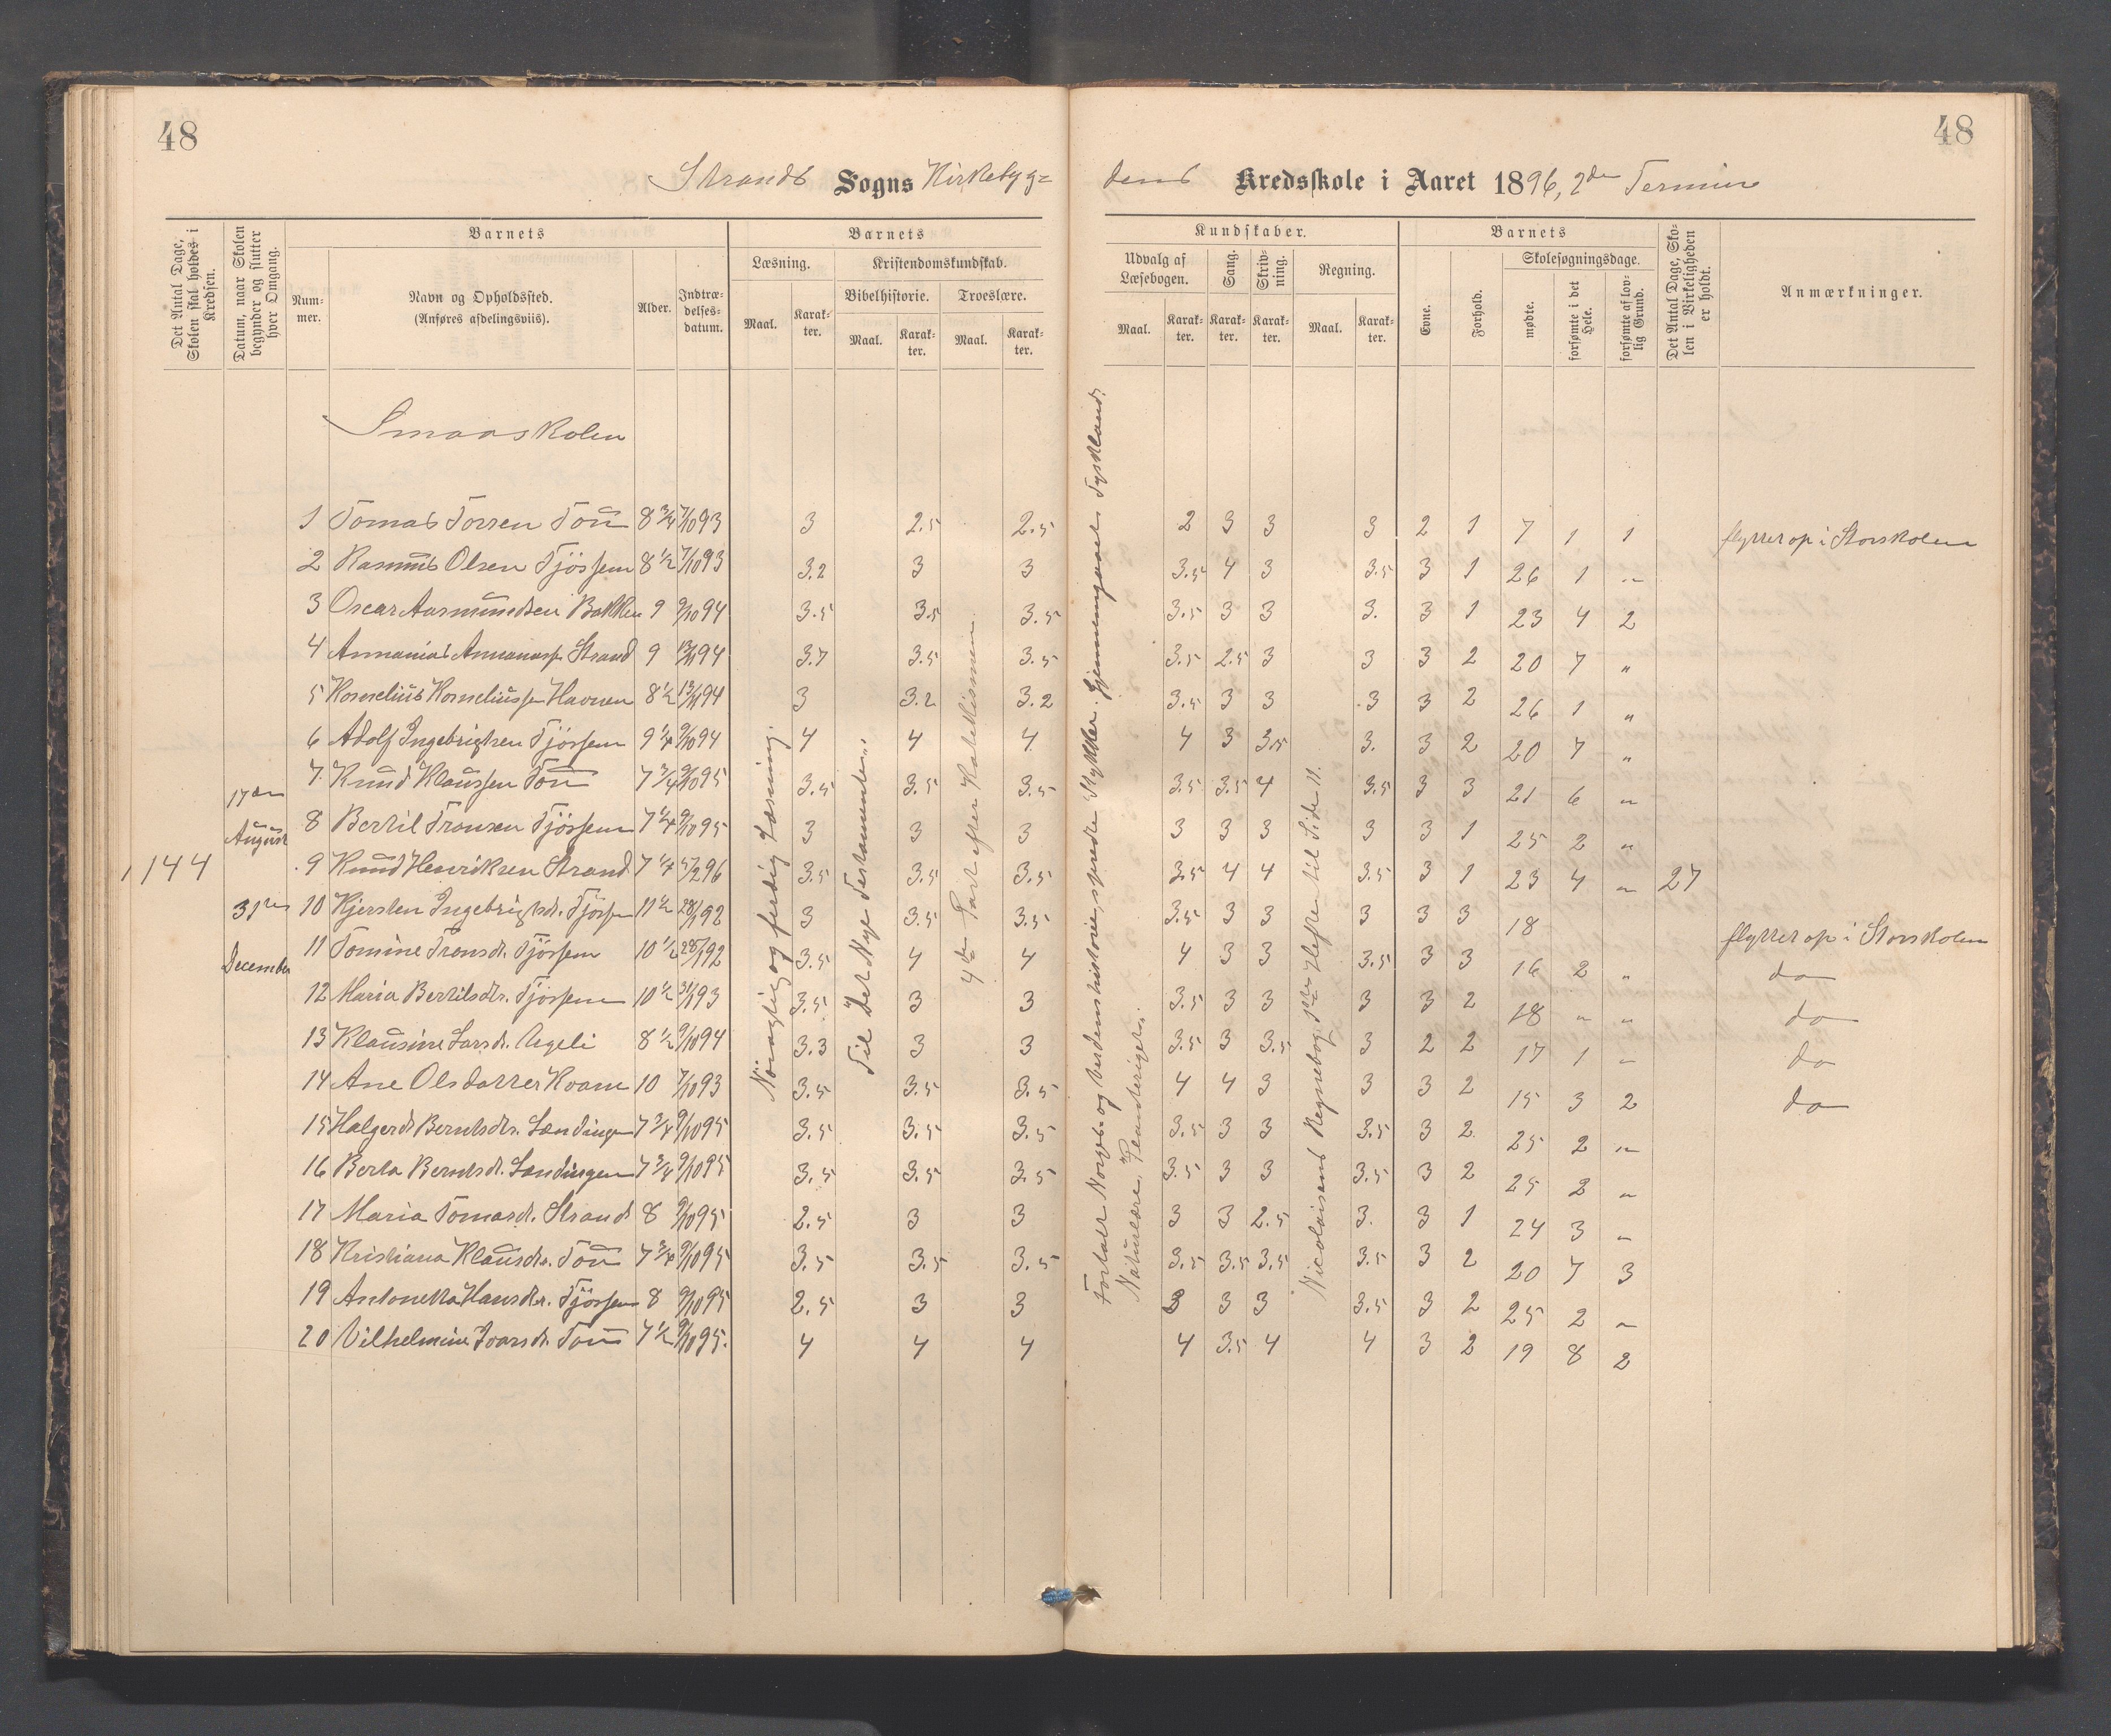 48
48
Strands Sogns Kirkebyg=
dens Kredsskole i Aaret 1896, 2den Termin
Det Antal Dage, Skolen skal holdes i Kredsen.
Datum, naar Skolen begynder og slutter hver Omgang.
Barnets
Num-mer.
Navn og Opholdssted.
(Anføres afdelingsviis).
Alder.
Indtræ-delses-datum.
Barnets
Læsning.
Kristendomskundskab.
Bibelhistorie.
Troeslære.
Maal.
Karak-ter.
Maal.
Karak-ter.
Maal.
Karak-ter.
Kundskaber.
Udvalg af Læsebogen.
Sang.
Skriv-ning.
Regning.
Maal.
Karak-ter.
Karak-ter.
Karak-ter.
Maal.
Karak-ter.
Barnets
Evne.
Forhold.
Skolesøgningsdage.
mødte.
forsømte i det Hele.
forsømte af lov-lig Grund.
Det Antal Dage, Sko-len i Virkeligheden er holdt.
Anmærkninger.
Smaaskolen
144
17de August
31te December
Nöiagtig og færdig Læsning.
Til Det Nye Testamenten.
4de Part efter Katekismen.
Fortalt Norges- og Verdenshistorie, spredte Stykker. Gjennemgaaet Tyskland,
Naturlære, Planterigets.
Nicolaisens Regnebog 1ste Hefte til Side 11.
1 Tomas Torren Tou 8 3/4 7/10 93 3 2.5 2.5 2 3 3 3 2 1 7 1 1 flyttet op i Storskolen
2 Rasmus Olsen Tjössem 8 1/2 7/10 93 3.2 3 3 3.5 4 3 3.5 3 1 26 1 "
3 Oscar Aasmundsen Bakken 9 9/10 94 3.5 3.5 3.5 3.5 3 3 3. 3 1 23 4 2
4 Annanias Annanass. Strand 9 94 3.7 3.5 3.5 3.5 2.5 3 3 3 2 20 7 "
5 Kornelius Korneliussen Havnen 8 1/2 94 3 3.2 3.2 3.5 3 3 3 3 2 26 1 "
6 Adolf Ingebrigtsen Tjössem 9 1/4 9/10 94 4 4 4 4 3 3.5 3. 3 2 20 7 "
7. Knud Klaussen Tou 7 3/4 9/10 95 3.5 3.5 3.5 3.5 3.5 4 3.5 3 3 21 6 "
8 Bertil Tronsen Tjössem 7 1/4 9/10 95 3 3 3 3 3 3 3 3 1 25 2 "
9 Knud Henriksen Strand 7 1/4 5/2 96 3.5 3.5 3.5 3.5 4 4 3.5 3 1 23 4 " 27
10 Kjersten Ingebrigtsdt. Tjössem 11 1/2 28/1 92 3 3.5 3.5 3.5 3 3 3 3 3 18 flyttet op i Storskolen
11 Tomine Tronsdt. Tjössem 10 1/2 28/1 92 3.5 4 4 4 3 3 3.5 3 3 16 2 " do
12 Maria Bertilsdtr. Tjössem 10 1/2 31/1 93 3.5 3 3 3.5 3 3 3 3 2 18 " " do
13 Klausine Larsdt. Aygeli 8 1/2 9/10 94 3.3 3 3 3.5 3 3.5 3 2 2 17 1 " do
14 Ane Olsdatter Kvam 10 7/10 93 3.5 3.5 3.5 4 4 3 3 3 2 15 3 2 do
15 Halgerd Berntsdtr. Lændingen 7 3/4 9/10 95 3.5 3.5 3.5 3.5 3 3 3.5 3 2 25 2 "
16 Berta Berntsdt. Lændingen 7 3/4 9/10 95 3.5 3.5 3.5 3.5 3 3 3.5 3 2 25 2 "
17 Maria Tomasdt. Strand 8 9/10 95 2.5 3 3 3 3 2.5 3. 3 1 24 3 "
18 Kristiana Klausdtr. Tou 7 3/4 9/10 95 3.5 3.5 3.5 3.5 3.5 3.5 3.5 3 2 20 7 3
19 Antonetta Hansdtr. Tjössem 8 9/10 95 2.5 3 3 3 3 3 3.5 3 2 25 2 "
20 Vilhelmine Ivarsdt. Tou 7 1/2 9/10 95. 4 4 4 4 3.5 4 4 3 2 19 8 2